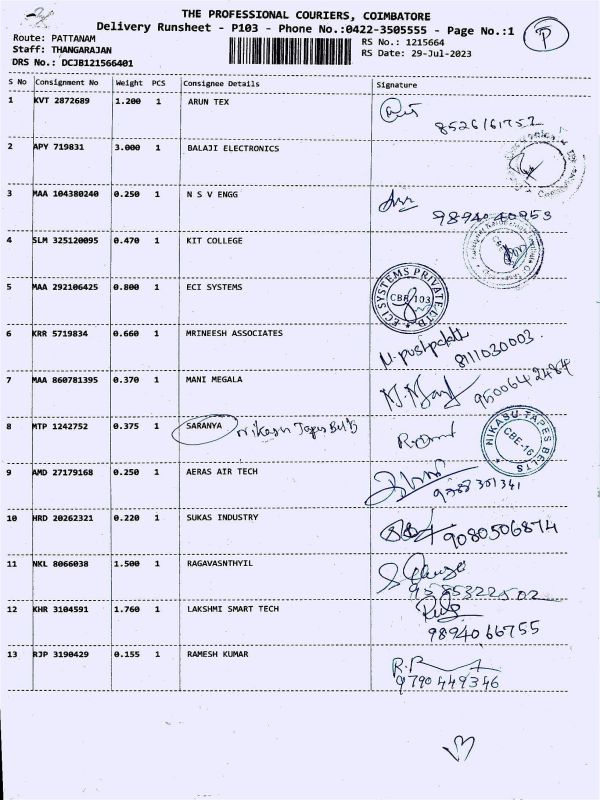 THE PROFESSIONAL COURIERS, COIMBATORE
Delivery Runsheet - P103 - Phone No.:0422-3505555 - Page No.:1
P
Route: PATTANAM
RS No.: 1215664
Staff: THANGARAJAN
RS Date: 29-Jul-2023
DRS No.: DCJB121566401
S No Consignment No Weight PCS Consignee Details Signature
1 KVT 2872689 1.200 1 ARUN TEX
8526161752
2 APY 719831 3.000 1 BALAJI ELECTRONICS
3 MAA 104380240 0.250 1 N S V ENGG
9894040953
4 SLM 325120095 0.470 1 KIT COLLEGE
5 MAA 292106425 0.800 1 ECI SYSTEMS
ECI SYSTEMS PRIVATE LTD
CBE 103
6 KRR 5719834 0.660 1 MRINEESH ASSOCIATES
8111030003
7 MAA 860781395 0.370 1 MANI MEGALA
9500642484
8 MTP 1242752 0.375 1 SARANYA Nikasu Tapes Belts
NIKASU TAPES BELTS
CBE-16
9 AMD 27179168 0.250 1 AERAS AIR TECH
10 HRD 20262321 0.220 1 SUKAS INDUSTRY
9080506874
11 NKL 8066038 1.500 1 RAGAVASNTHYIL
12 KHR 3104591 1.760 1 LAKSHMI SMART TECH
9894066755
13 RJP 3190429 0.155 1 RAMESH KUMAR
9790449346